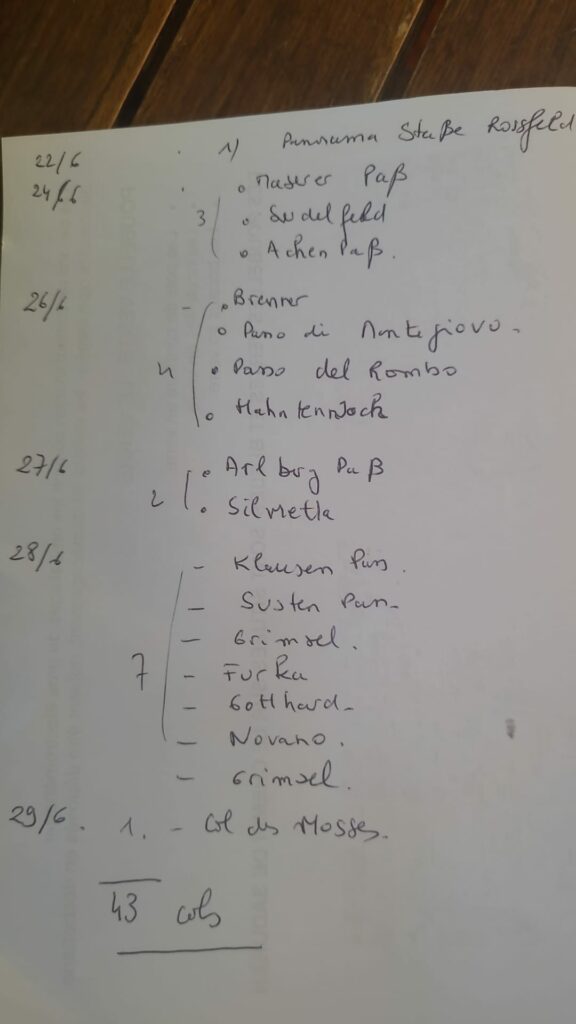 22/6 . 1) Panorama Staße Rossfeld
24/6 . Maserer Paß
3 Sudelfeld
Achen Paß.
26/6 - Brenner
Passo di Montegiovo.
4 Passo del Rombo
Hahntennjoch
27/6 Arlberg Paß
2 Silvretta
28/6 - Klausen Pass.
- Susten Pass-
- Grimsel.
7 - Furka
- Gotthard-
- Novano.
- Grimsel.
29/6. 1. - Col des Mosses.
43 cols